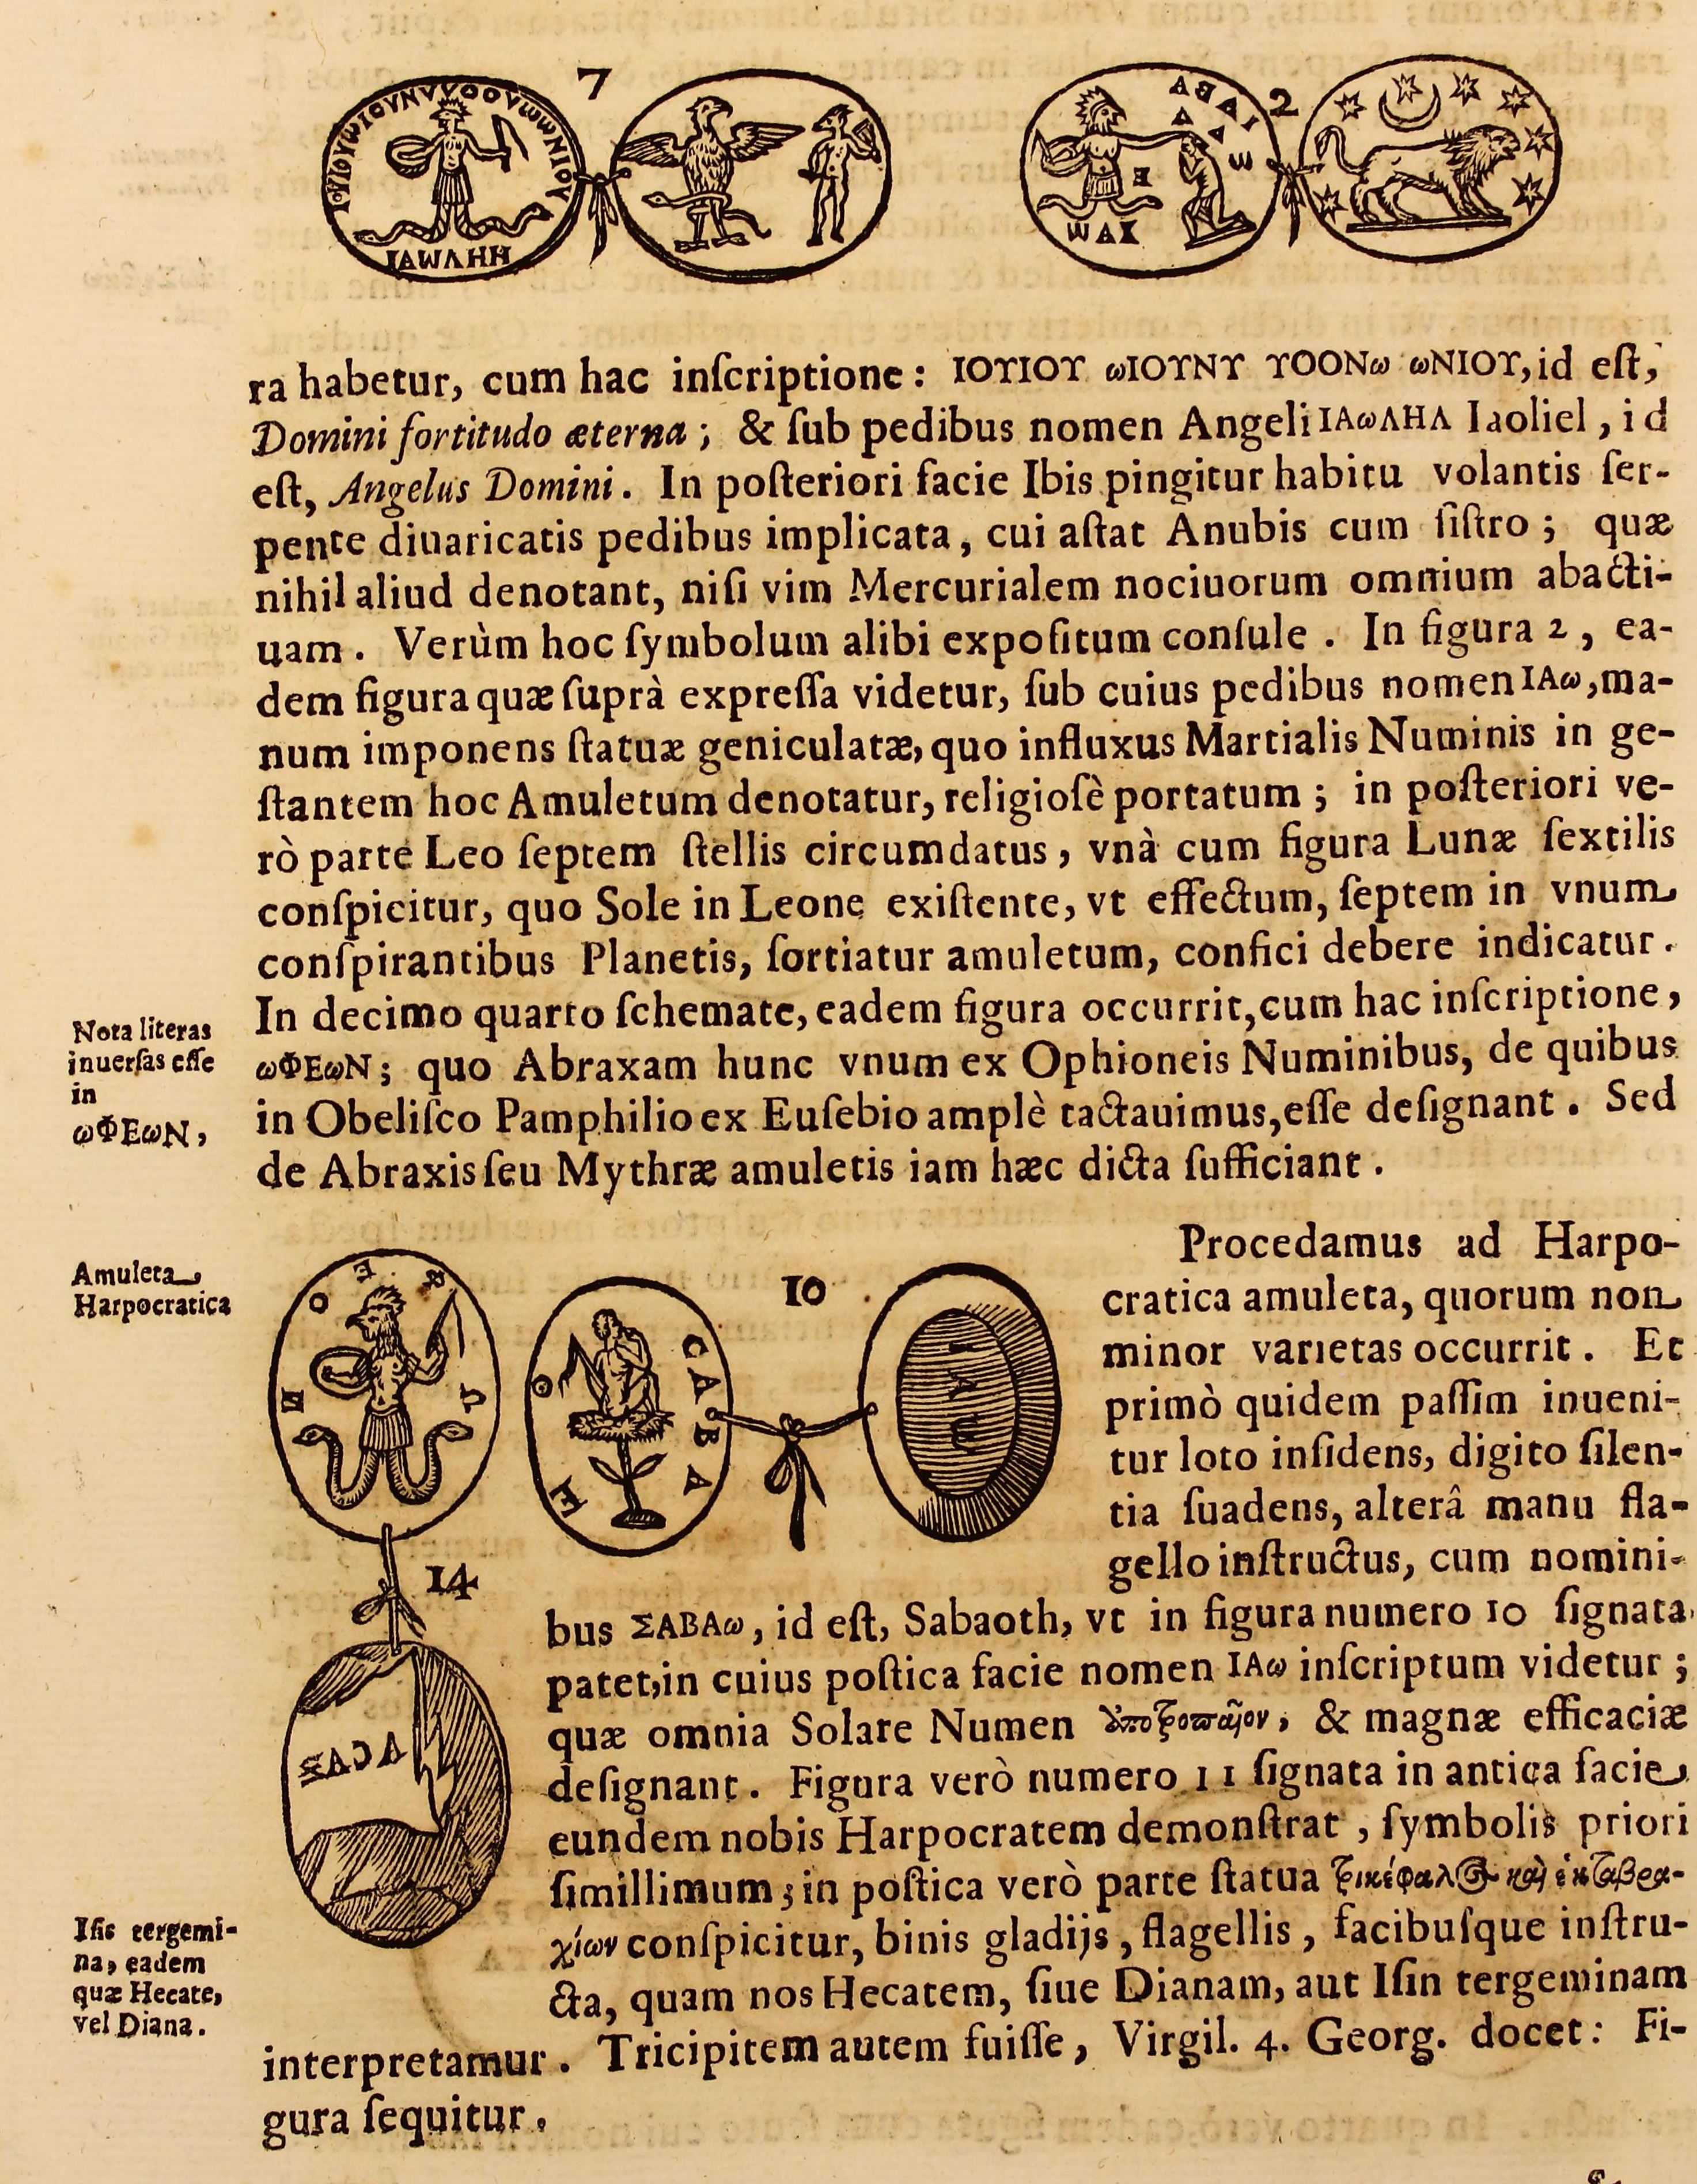 7
2
ΙΑωΛΗΗ
ωΑΙ
ra habetur, cum hac inſcriptione: ΙΟΥΙΟΥ ωΙΟΥΝΥ ΥΟΟΝω ωΝΙΟΥ, id eſt,
Domini fortitudo æterna; & ſub pedibus nomen Angeli ΙΑωΛΗΛ Iaoliel, id
eſt, Angelus Domini. In poſteriori facie Ibis pingitur habitu volantis ſer-
pente diuaricatis pedibus implicata, cui aſtat Anubis cum ſiſtro; quæ
nihil aliud denotant, niſi vim Mercurialem nociuorum omnium abacti-
uam. Verùm hoc ſymbolum alibi expoſitum conſule. In figura 2, ea-
dem figura quæ ſuprà expreſſa videtur, ſub cuius pedibus nomen ΙΑω, ma-
num imponens ſtatuæ geniculatæ, quo influxus Martialis Numinis in ge-
ſtantem hoc Amuletum denotatur, religioſè portatum; in poſteriori ve-
rò parte Leo ſeptem ſtellis circumdatus, vnà cum figura Lunæ ſextilis
conſpicitur, quo Sole in Leone exiſtente, vt effectum, ſeptem in vnum
conſpirantibus Planetis, ſortiatur amuletum, confici debere indicatur.
In decimo quarto ſchemate, eadem figura occurrit, cum hac inſcriptione,
ωΦΕωΝ; quo Abraxam hunc vnum ex Ophioneis Numinibus, de quibus
in Obeliſco Pamphilio ex Euſebio amplè tactauimus, eſſe deſignant. Sed
de Abraxis ſeu Mythræ amuletis iam hæc dicta ſufficiant.
Nota literas
inuerſas eſſe
in
ωΦΕωΝ,
Amuleta
Harpocratica
10
CABA
ΙΑω
14
Procedamus ad Harpo-
cratica amuleta, quorum non
minor varietas occurrit. Et
primò quidem paſſim inueni-
tur loto inſidens, digito ſilen-
tia ſuadens, alterâ manu fla-
gello inſtructus, cum nomini-
bus ΣΑΒΑω, id eſt, Sabaoth, vt in figura numero 10 ſignata
patet, in cuius poſtica facie nomen ΙΑω inſcriptum videtur;
quæ omnia Solare Numen & magnæ efficaciæ
deſignant. Figura verò numero 11 ſignata in antica facie
eundem nobis Harpocratem demonſtrat, ſymbolis priori
ſimillimum; in poſtica verò parte ſtatua τρικέφαλος καὶ
χίων conſpicitur, binis gladijs, flagellis, facibuſque inſtru-
cta, quam nos Hecatem, ſiue Dianam, aut Iſin tergeminam
interpretamur. Tricipitem autem fuiſſe, Virgil. 4. Georg. docet: Fi-
gura ſequitur.
Iſis tergemi-
na, eadem
quæ Hecate,
vel Diana.